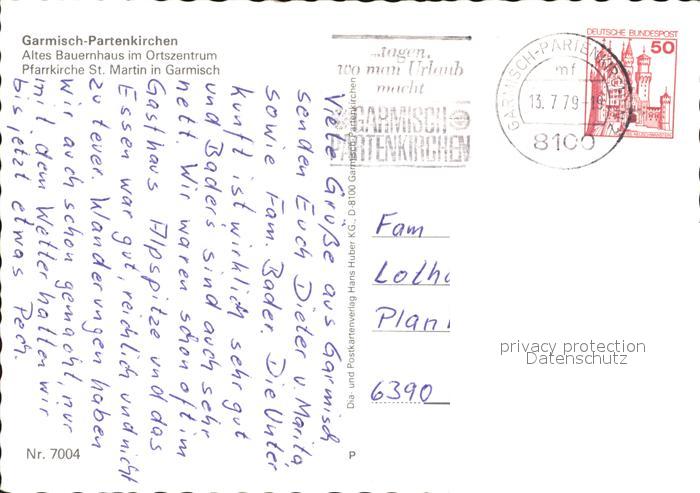 Garmisch-Partenkirchen
Altes Bauernhaus im Ortszentrum
Pfarrkirche St. Martin in Garmisch
...tagen,
wo man Urlaub
macht
GARMISCH
PARTENKIRCHEN
GARMISCH-PARTENKIRCHEN
mf
13.7.79-18
8100
DEUTSCHE BUNDESPOST
50
Viele Grüße aus Garmisch
senden Euch Dieter u. Marita,
sowie Fam. Bader. Die Unter
kunft ist wirklich sehr gut
und Baders sind auch sehr
nett. Wir waren schon oft im
Gasthaus Alpspitze und das
Essen war gut, reichlich und nicht
zu teuer. Wanderungen haben
wir auch schon gemacht, nur
mit dem Wetter hatten wir
bis jetzt etwas Pech.
Dia- und Postkartenverlag Hans Huber KG., D-8100 Garmisch-Partenkirchen
Fam
Loth
Plan
6390
privacy protection
Datenschutz
Nr. 7004
P